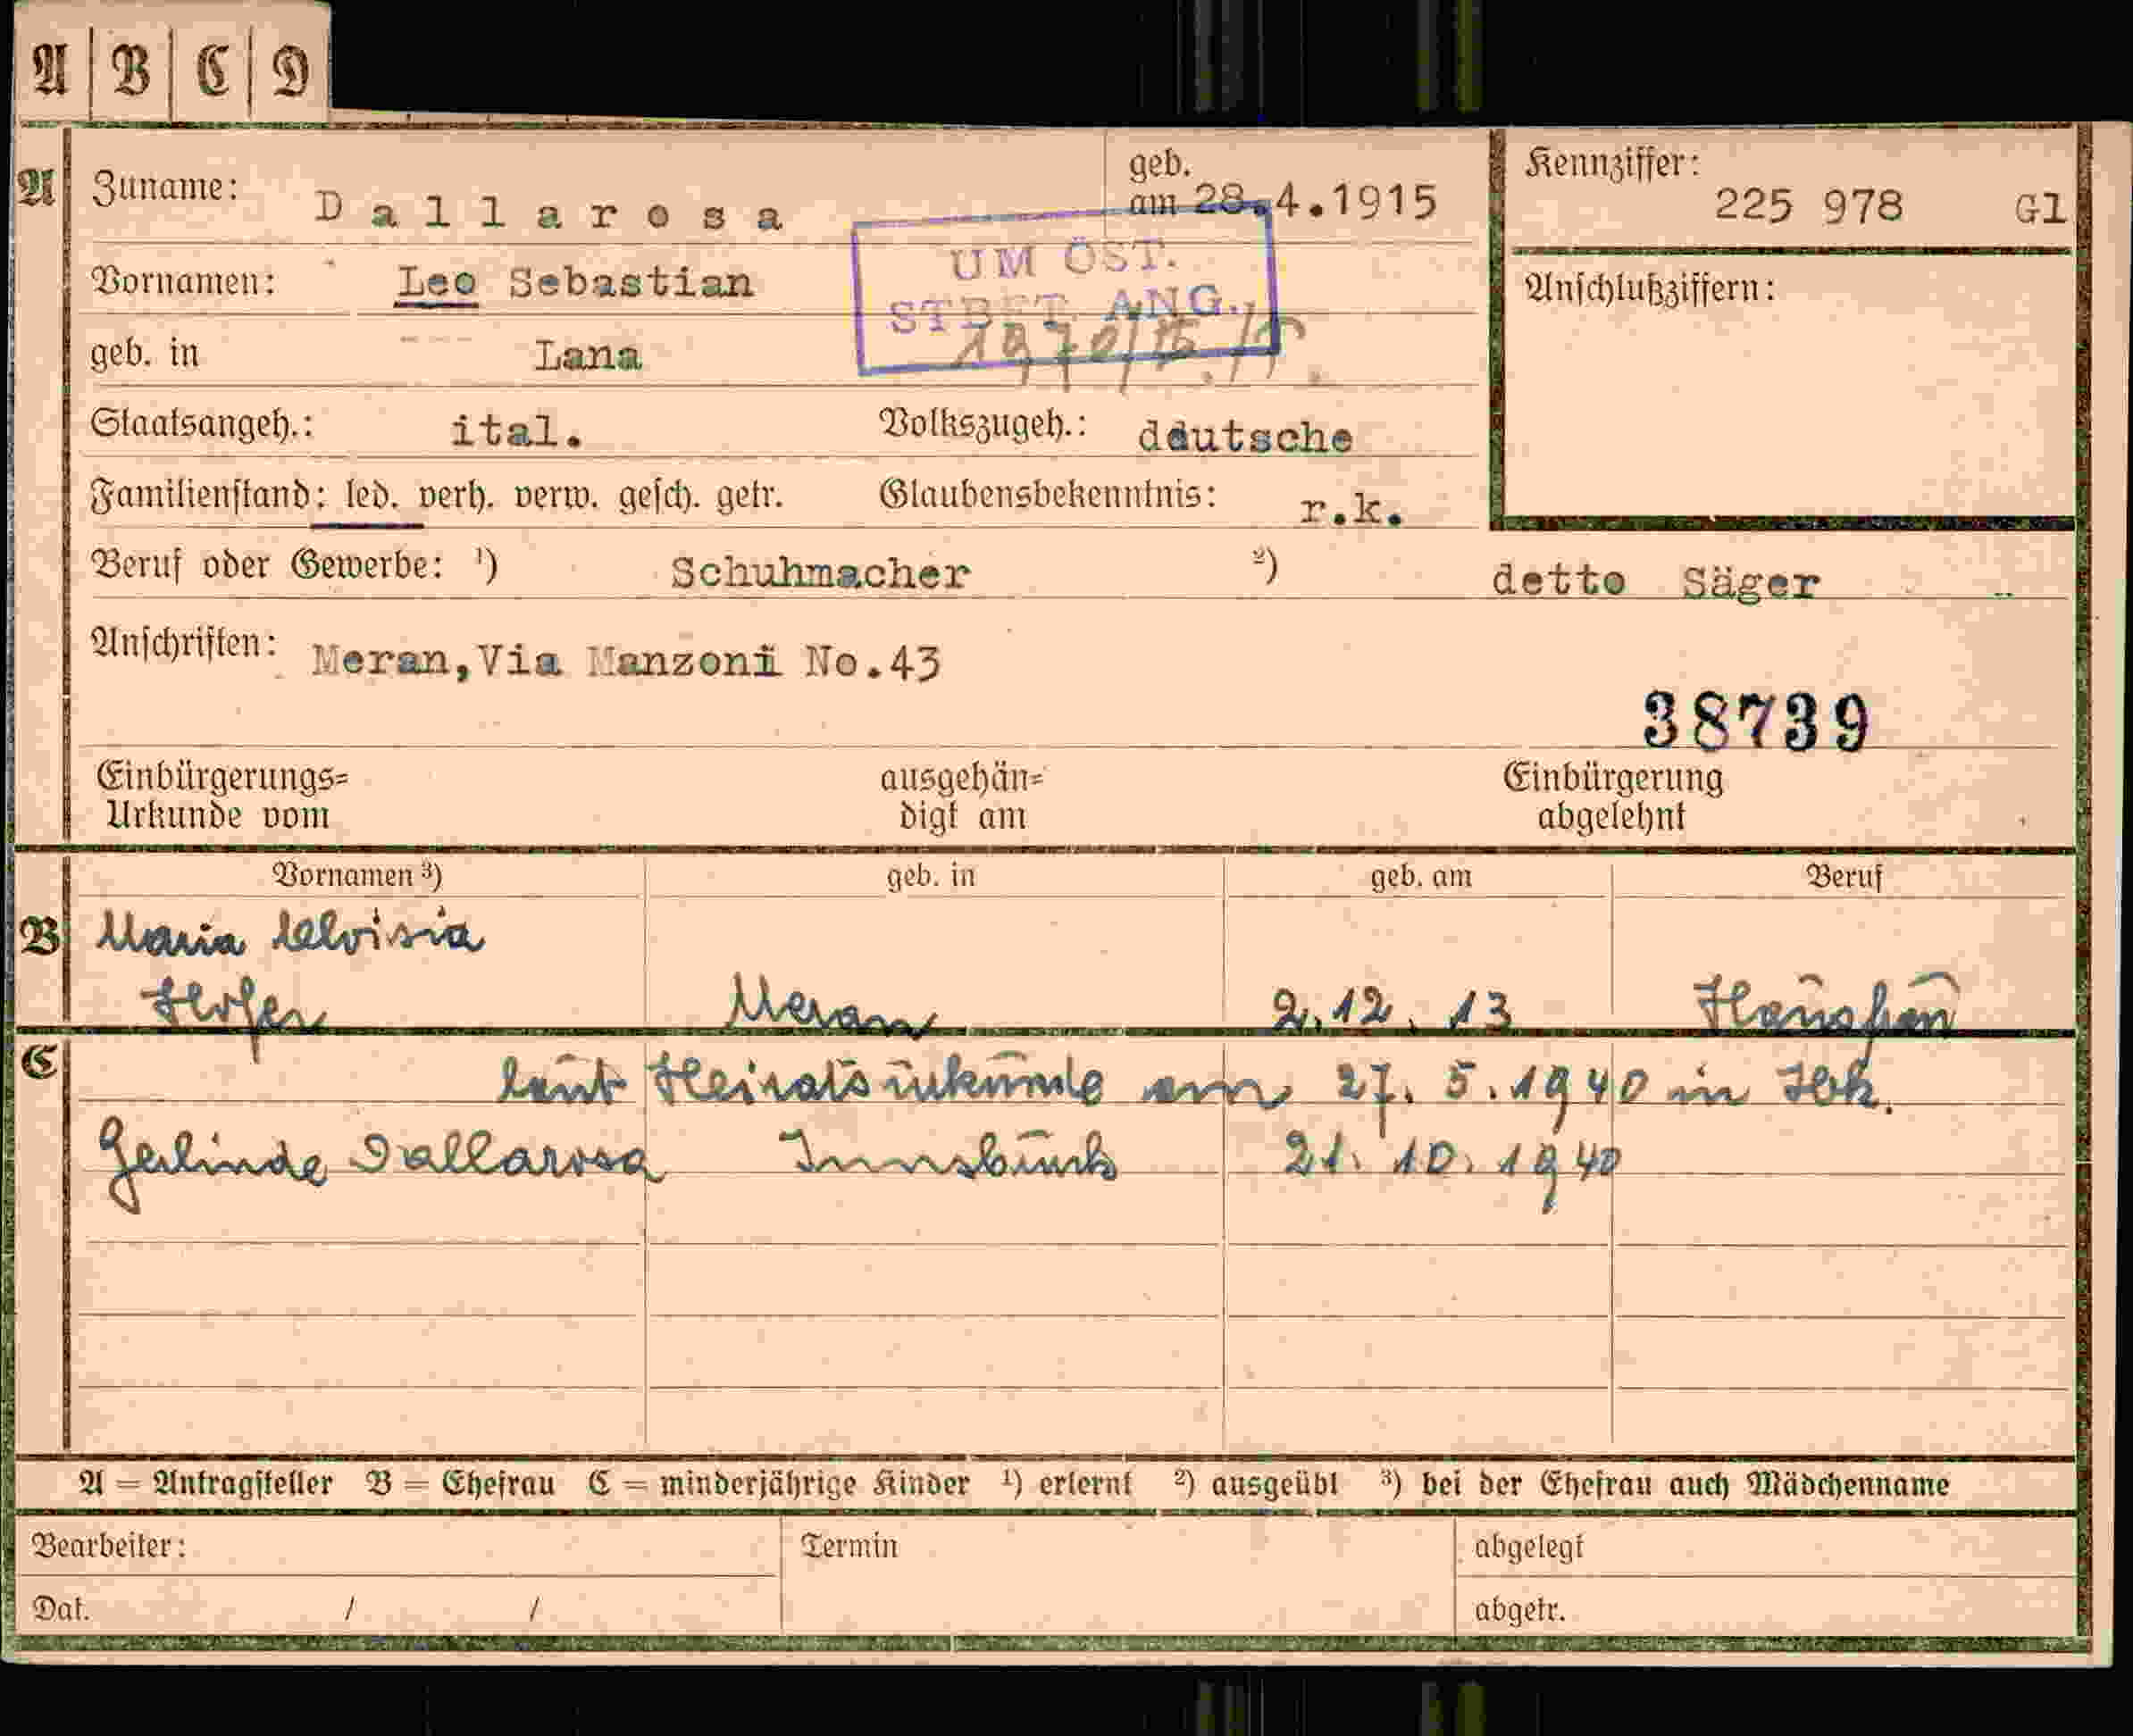 A B C D
A Zuname: Dallarosa geb. am 28.4.1915 Kennziffer: 225 978 Gl
UM ÖST.
Vornamen: Leo Sebastian Anschlußziffern:
STBGT. ANG.
geb. in Lana
Staatsangeh.: ital. Volkszugeh.: ddutsche
Familienstand: led. verh. verw. gesch. getr. Glaubensbekenntnis: r.k.
Beruf oder Gewerbe: ¹) Schuhmacher ²) detto Säger
Anschriften: Meran,Via Manzoni No.43
38739
Einbürgerungs= ausgehän= Einbürgerung
Urkunde vom digt am abgelehnt
Vornamen ³) geb. in geb. am Beruf
B Maria Aloisia
Hofer Meran 2.12.13 Hausfrau
C laut Heiratsurkunde am 27.5.1940 in Ibk.
Gerlinde Dallarosa Innsbruck 21.10.1940
A = Antragsteller B = Ehefrau C = minderjährige Kinder ¹) erlernt ²) ausgeübt ³) bei der Ehefrau auch Mädchenname
Bearbeiter: Termin abgelegt
Dat. / / abgetr.